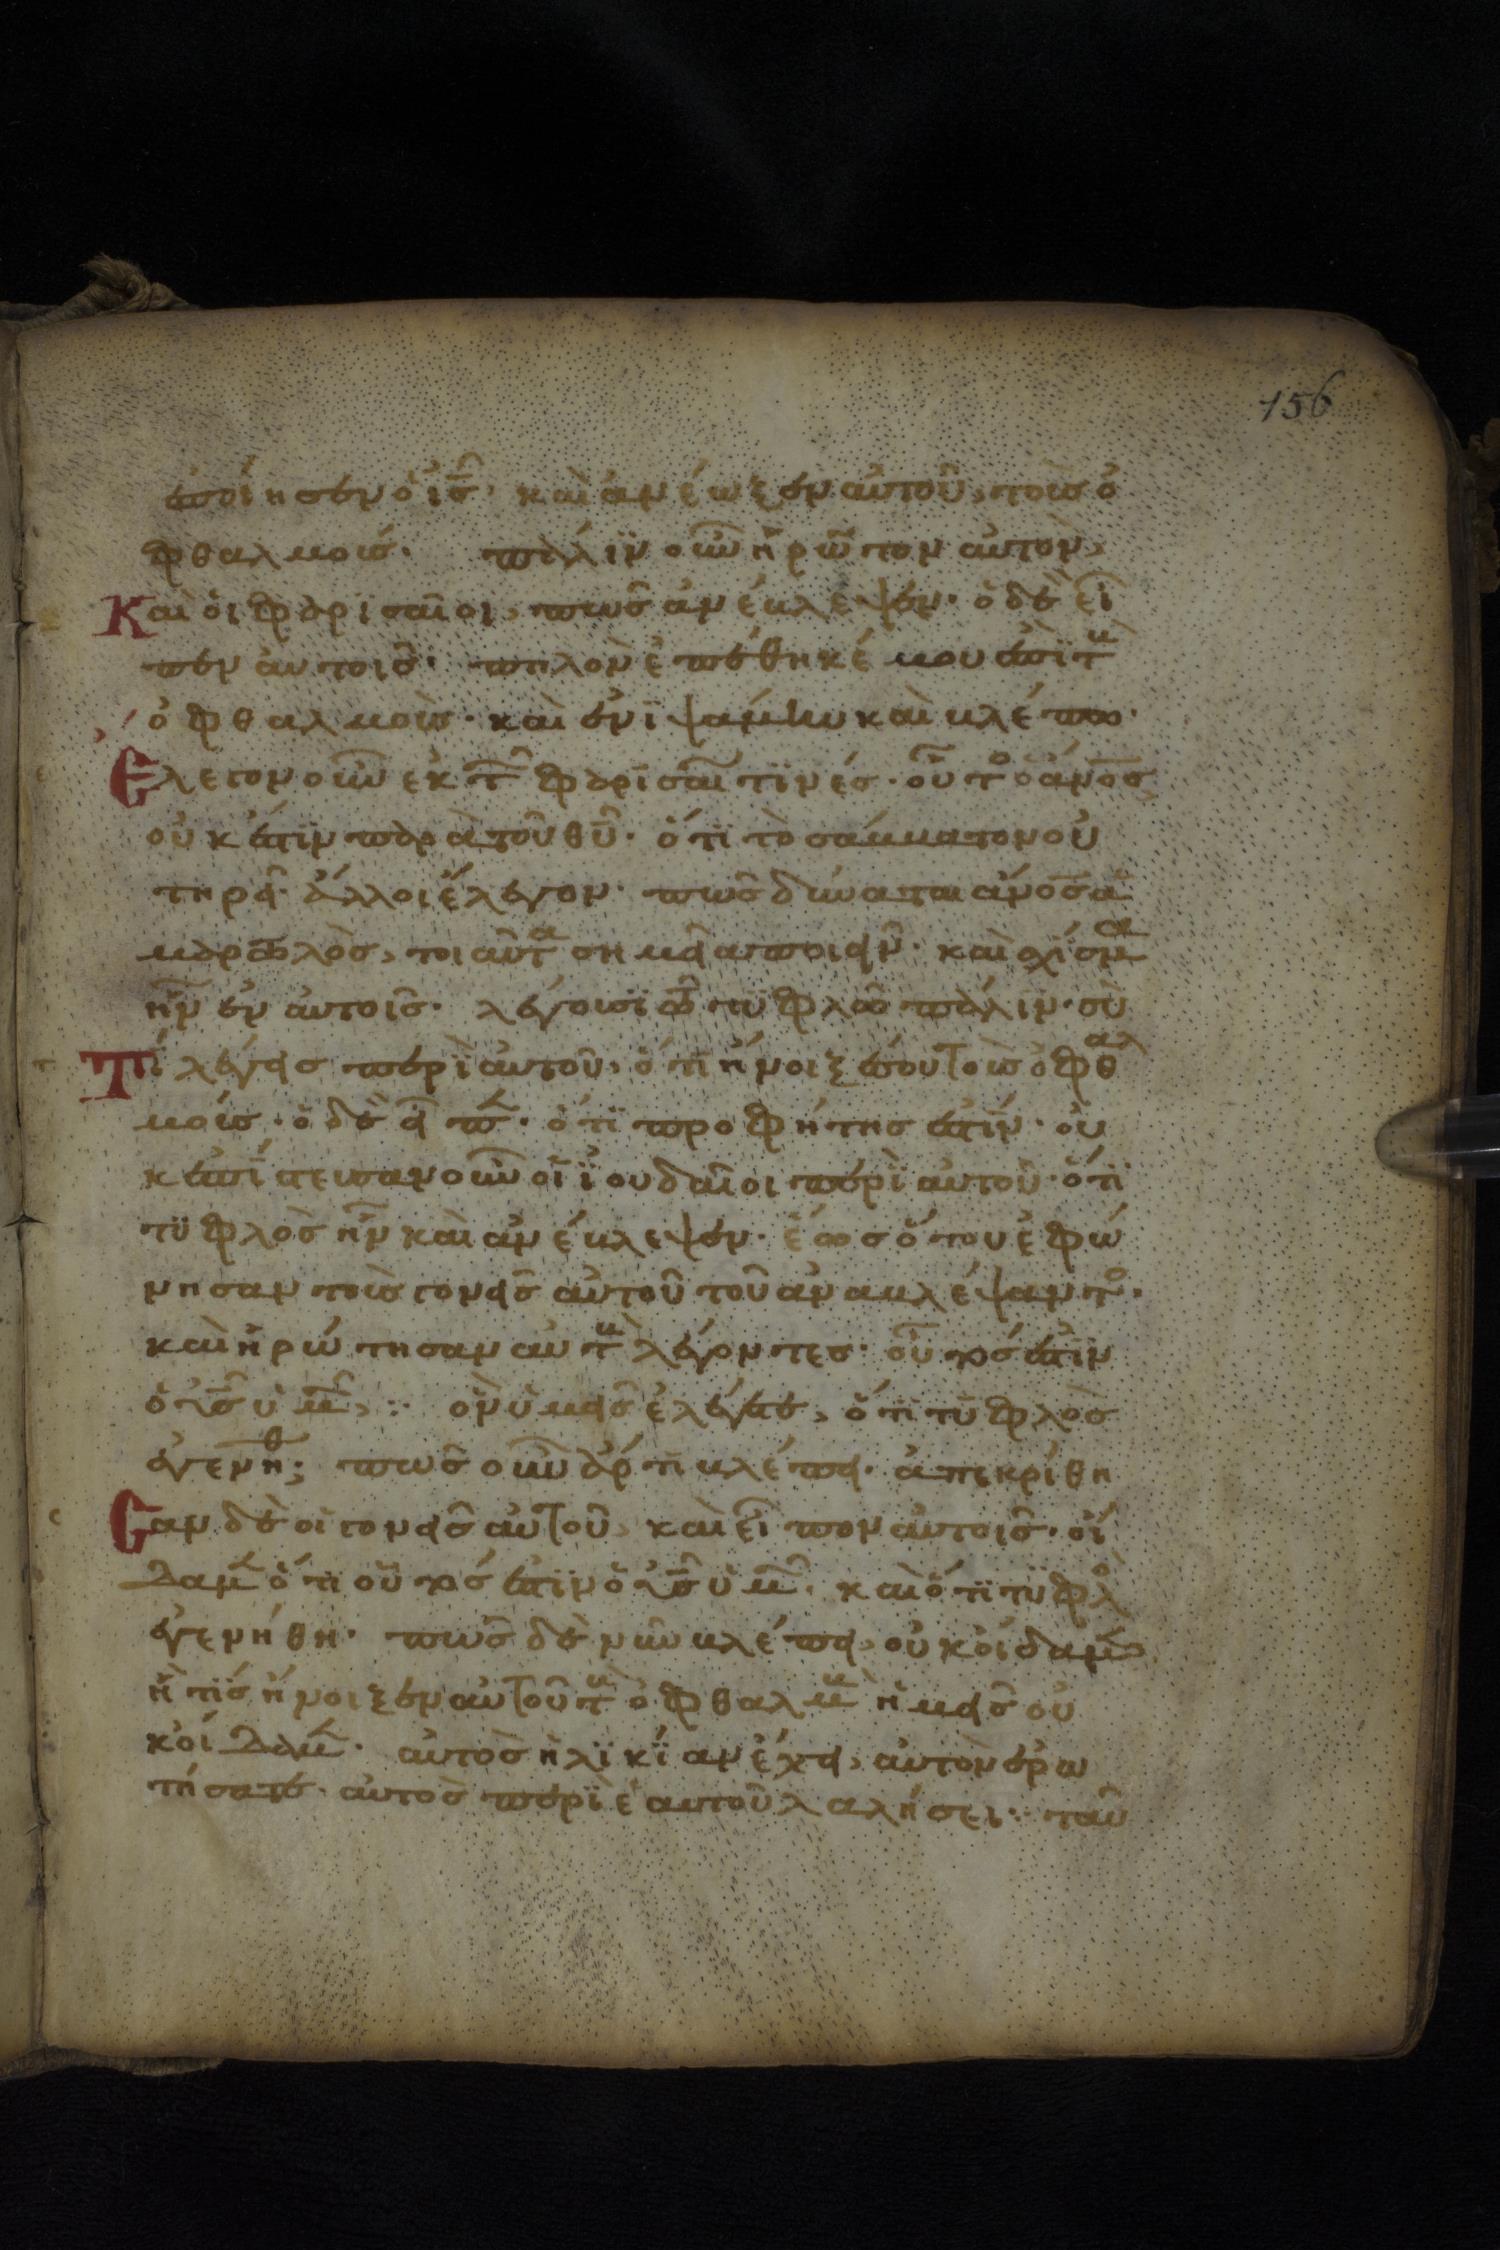 156
ἐποίησεν ὁ ις̅· καὶ ἀνέωξεν αὐτοῦ, τοὺς ὀ
φθαλμούς· πάλϊν οὖν ἠρώτων αὐτὸν,
Καὶ οἱ φαρϊσαῖοι, πῶς ἀνέβλεψεν· ὁ δὲ εἶ
πεν αὐτοῖς· πηλὸν ἐπέθηκέ μου ἐπὶ τ
ὀφθαλμοὺς· καὶ ἐνϊψάμην καὶ βλέπω·
Ἔλεγον οὖν ἐκ τ φαρϊσαί τϊνές· οὗτ ὁ ἄνος
οὐκ ἔστϊν παρὰ τοῦ θυ̅· ὅτϊ τὸ σάββατον οὐ
τηρεῖ· ἄλλοι ἔλεγον· πῶς δύναται ἄνος ἁ
μαρτωλὸς, τοιαῦτα σημεῖα ποιεῖν· καὶ σχίσμα
ἦν ἐν αὐτοῖς· λέγουσϊ τῶ τϋφλῶ πάλϊν· σὺ
Τί λέγεις περὶ αὐτοῦ, ὅτϊ ἤνοιξέ σου τοὺς ὀφθαλ
μούς· ὁ δὲ εἶπ· ὅτϊ προφήτης ἐστϊν· οὐ
κ ἐπίστευσαν οὖν οἱ ἰουδαῖοι περὶ αὐτοῦ· ὅτϊ
τϋφλὸς ἦν καὶ ἀνέβλεψεν· ἕως ὅτου ἐφώ
νησαν τοὺς γονεῖς αὐτοῦ τοῦ ἀναβλέψαντο·
καὶ ἠρώτησαν αὐτ λέγοντες· οὗτός ἐστϊν
ὁ υς̅ ὑμ, ·: ὃν ὑμεῖς ἐλέγετε, ὅτϊ τϋφλὸς
ἐγεννήθ; πῶς οὖν ἄρτϊ βλέπει· ἀπεκρίθη
Σαν δὲ οἱ γονεῖς αὐτοῦ, καὶ εἶπον αὐτοῖς· οἴ
δαμ ὅτϊ οὗτός ἐστϊν ὁ υς̅ ὑμ· καὶ ὅτϊ τϋφλὸ
ἐγενήθη· πῶς δὲ νῦν βλέπει, οὐκ οἴδαμ
ἢ τίς ἤνοιξεν αὐτοῦ τ ὀφθαλμ ἡμεῖς οὐ
κ οἴδαμ· αὐτὸς ἡλϊκίαν ἔχει, αὐτὸν ἐρω
τήσατε· αὐτὸς περὶ ἑαυτοῦ λαλήσει· ταῦ